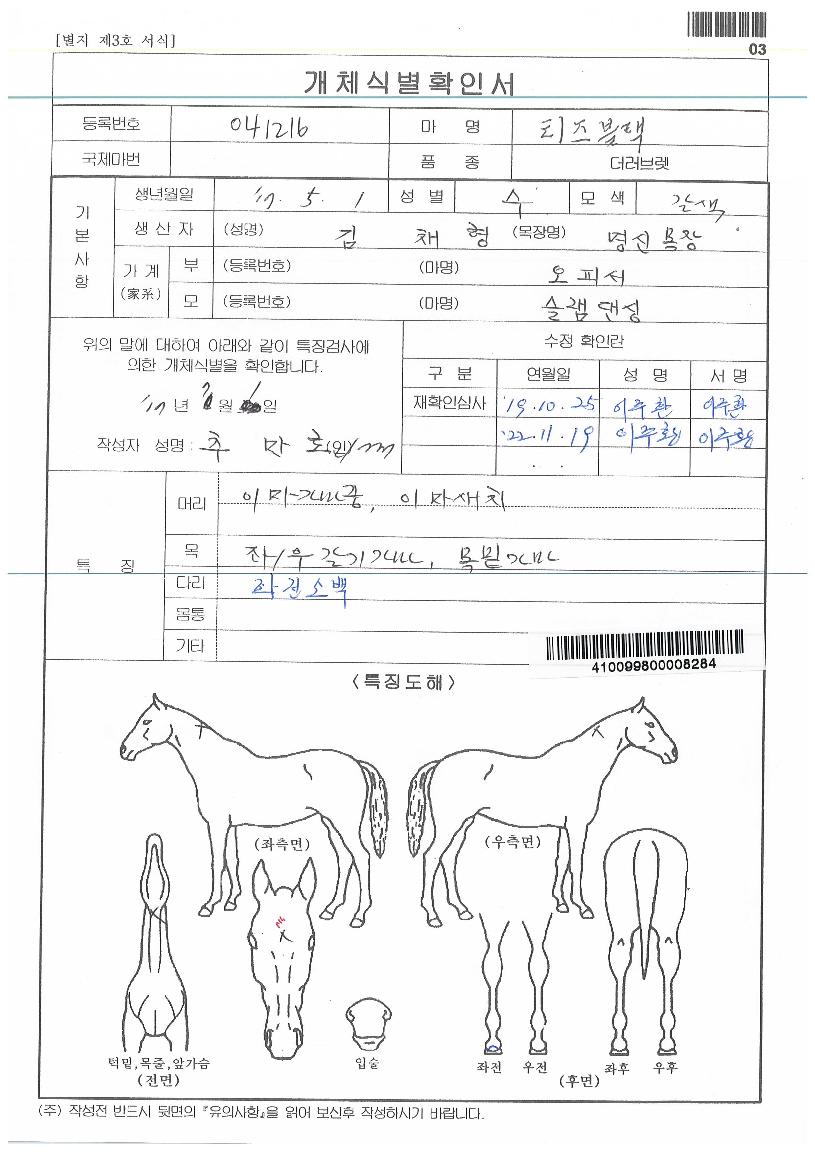 [별지 제3호 서식]
03
개체식별확인서
등록번호 041216 마 명 티즈블랙
국제마번 품 종 더러브렛
기본사항
생년월일 '17. 5. 1 성 별 수 모 색 갈색
생 산 자 (성명) 김 채 형 (목장명) 명신목장
가 계 (家系) 부 (등록번호) (마명) 오피서
모 (등록번호) (마명) 슬램댄싱
위의 말에 대하여 아래와 같이 특징검사에
의한 개체식별을 확인합니다.
'17 년 월 일
작성자 성명 : 추 마 호 (인)
수정 확인란
구 분 연월일 성 명 서 명
재확인심사 '19. 10. 25 이주환 이주환
'22. 11. 19 이주환 이주환
. .
특 징
머리 이마가마중, 이마새치
목 좌/우갈기가마, 목밑가마
다리 좌전소백
몸통
기타
410099800008284
<특징도해>
(좌측면) (우측면)
턱밑,목줄,앞가슴
(전면)
입술
좌전 우전 좌후 우후
(후면)
(주) 작성전 반드시 뒷면의 『유의사항』을 읽어 보신후 작성하시기 바랍니다.